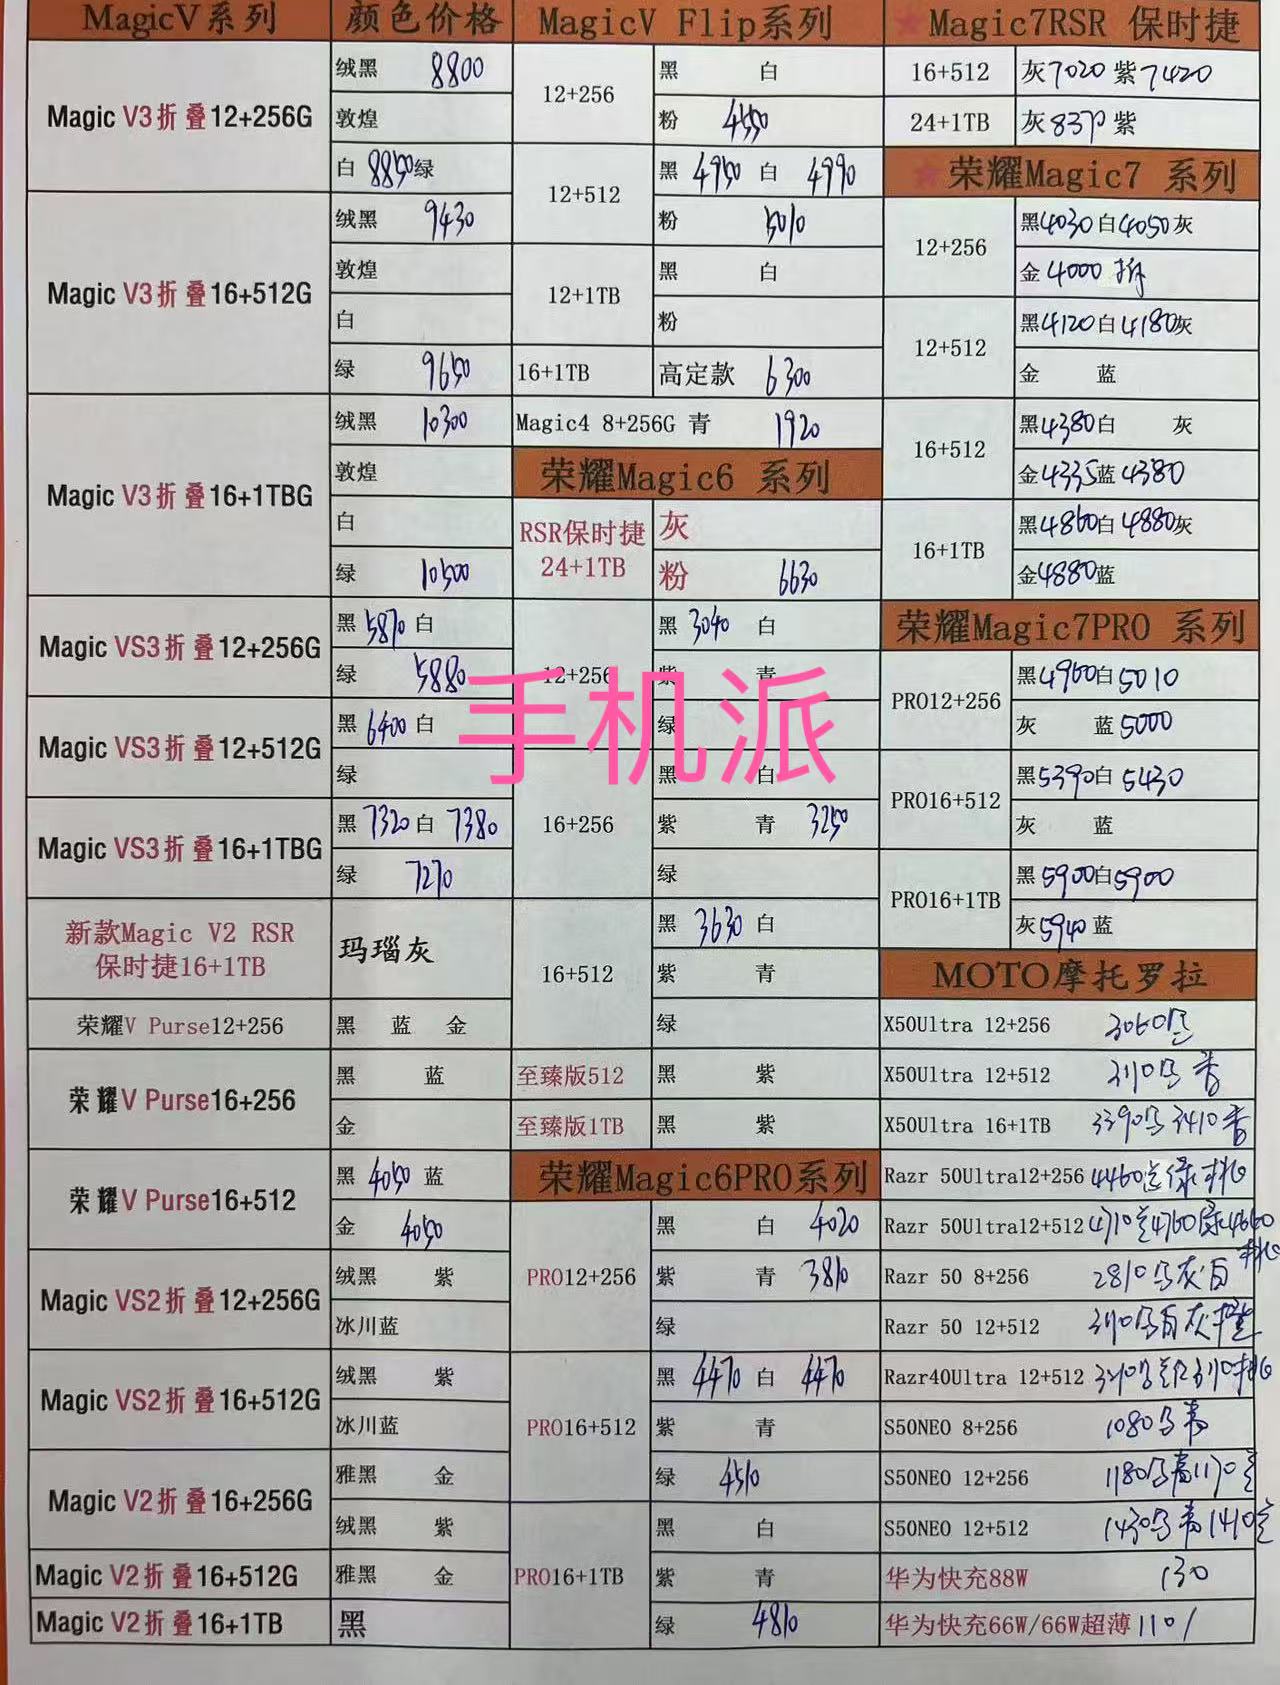 MagicV系列 颜色价格
Magic V3折叠12+256G
绒黑 8800
敦煌
白 8850 绿
Magic V3折叠16+512G
绒黑 9430
敦煌
白
绿 9650
Magic V3折叠16+1TBG
绒黑 10300
敦煌
白
绿 10500
Magic VS3折叠12+256G
黑 5870 白
绿 5880
Magic VS3折叠12+512G
黑 6400 白
绿
Magic VS3折叠16+1TBG
黑 7320 白 7380
绿 7270
新款Magic V2 RSR
保时捷16+1TB
玛瑙灰
荣耀V Purse12+256
黑 蓝 金
荣耀V Purse16+256
黑 蓝
金
荣耀V Purse16+512
黑 4050 蓝
金 4050
Magic VS2折叠12+256G
绒黑 紫
冰川蓝
Magic VS2折叠16+512G
绒黑 紫
冰川蓝
Magic V2折叠16+256G
雅黑 金
绒黑 紫
Magic V2折叠16+512G
雅黑 金
Magic V2折叠16+1TB
黑
MagicV Flip系列
12+256
黑 白
粉 4550
12+512
黑 4950 白 4990
粉 5010
12+1TB
黑 白
粉
16+1TB 高定款 6300
Magic4 8+256G 青 1920
荣耀Magic6 系列
RSR保时捷
24+1TB
灰
粉 6630
12+256
黑 3040 白
紫 青
绿
16+256
黑 白
紫 青 3250
绿
16+512
黑 3630 白
紫 青
绿
至臻版512 黑 紫
至臻版1TB 黑 紫
荣耀Magic6PRO系列
PRO12+256
黑 白 4020
紫 青 3810
绿
PRO16+512
黑 4470 白 4470
紫 青
绿 4510
PRO16+1TB
黑 白
紫 青
绿 4810
★Magic7RSR 保时捷
16+512 灰7020 紫7420
24+1TB 灰8370 紫
★荣耀Magic7 系列
12+256
黑4030白4050灰
金 4000 拆
12+512
黑4120白4180灰
金 蓝
16+512
黑4380白 灰
金4335蓝4380
16+1TB
黑4860白4880灰
金4880蓝
荣耀Magic7PRO 系列
PRO12+256
黑4960白5010
灰 蓝5000
PRO16+512
黑5390白5430
灰 蓝
PRO16+1TB
黑5900白5900
灰5940蓝
MOTO摩托罗拉
X50Ultra 12+256 3060
X50Ultra 12+512 3110
X50Ultra 16+1TB 3390 3410
Razr 50Ultra12+256 4460 绿 桃
Razr 50Ultra12+512 4710 4760绿4660
桃
Razr 50 8+256 2810 灰白
Razr 50 12+512 白灰
Razr40Ultra 12+512 桃
S50NEO 8+256 1080
S50NEO 12+256 1180 1170
S50NEO 12+512 1430 1410
华为快充88W 130
华为快充66W/66W超薄 110/
手机派